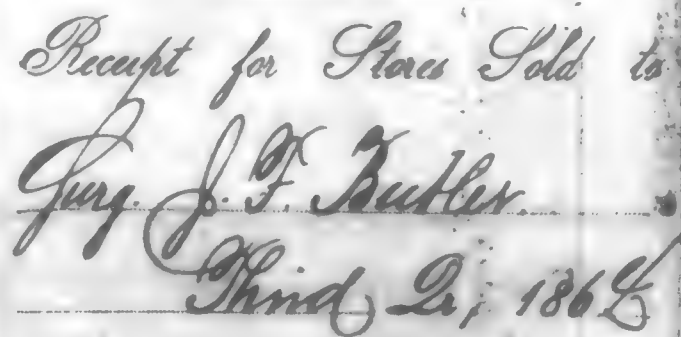 Receipt for Stores Sold to
Surg. J. F. Butler.
Third Qr, 1864